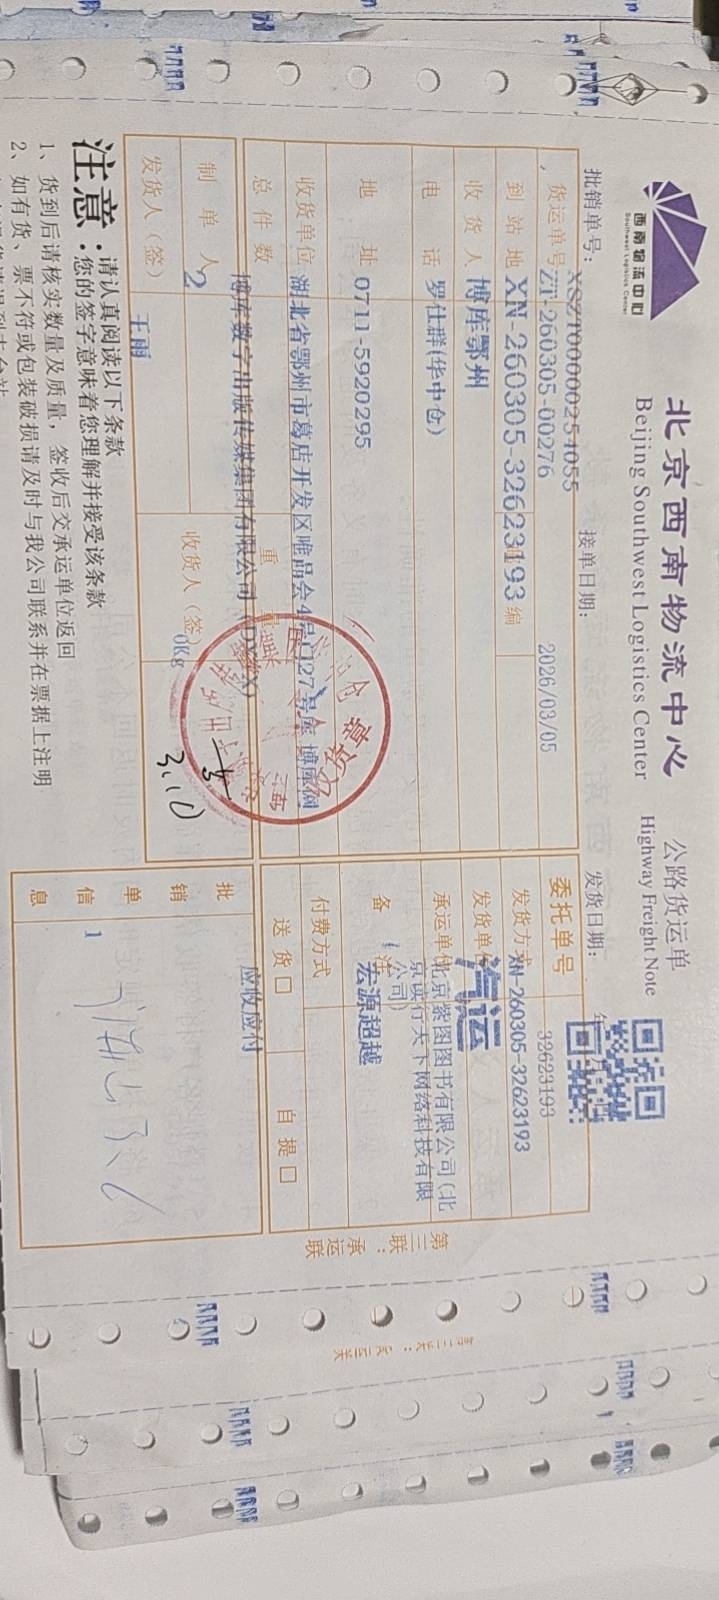 西南物流中心
Southwest Logistics Center
北京西南物流中心
Beijing Southwest Logistics Center
公路货运单
Highway Freight Note
批销单号:
接单日期:
发货日期:
年
XSZT0000254055
货运单号 ZN-260305-00276
2026/03/05
委托单号
32623193
到站地 XN-260305-32623193
编
发货方式 XN-260305-32623193
收货人 博库鄂州
发货单位
汽运
电话 罗仕群(华中仓)
承运单位 北京紫图图书有限公司(北
京读行天下网络科技有限
公司)
地址 0711-5920295
备注
宏源超越
收货单位 湖北省鄂州市葛店开发区唯品会4号门27号库 博库网
付费方式
总件数
重量
送货口
自提口
博库数字出版传媒集团有限公司(DXZX)
应收应付
制单人
2
收货人(签)
0Kg
批销单信息
1
发货人(签)
王雨
3.10
收货章
注意:
请认真阅读以下条款
您的签字意味着您理解并接受该条款
1、货到后请核实数量及质量，签收后交承运单位返回
2、如有货、票不符或包装破损请及时与我公司联系并在票据上注明
第三联：承运联